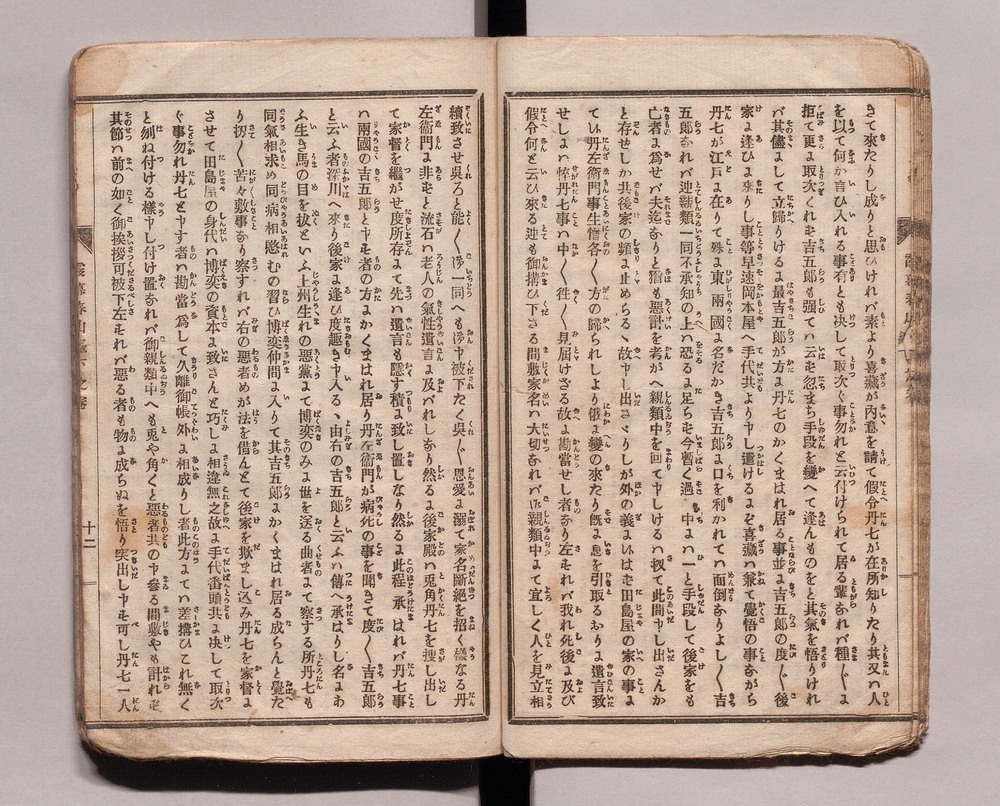 きて來たりし成りと思ひけれバ素より喜藏が内意を請て假令丹七が在所知りたり共又ハ人
を以て何か言ひ入れる事有とも决して取次ぐ事勿れと云付けられて居る輩なれバ種〻しよ
拒て更よ取次くれぬ吉五郎も强てハ云ぬ忽まち手段を變へて逢んものをと其氣を悟りけれ
バ其儘よして立歸りけるよ最吉五郎が方よ丹七のかくまはれ居る事並よ吉五郎の度〻後
家よ逢ひよ來りし事等早速岡本屋へ手代共よりつかはし申遣けるよぞ喜藏ハ兼て覺悟の事ながら
丹七が江戸よ在りて殊よ東兩國よ名だかき吉五郎よ口を利かれてハ面倒なりよし〻吉
五郎なれバ迚親類一同不承知の上ハ恐るよ足らぬ今暫く過し中よハ一ト手段して後家をも
亡者よ爲せバ夫迄なりと猶も惡計を考がへ親類中を回て申しけるハ扨て此間申し出さんか
と存せしか共後家の頻よ止めらるゝ故申し出さゞりしが外の義よハはぬ田島屋の家の事よ
てハ丹左衞門事生物各〻方の歸られしより俄よ變の來たり既よ息を引取るおりよ遺言致
せしよハ悴丹七事ハ中〻徃〻見屆けざる故よ勘當せし者なり左すれバ我れ死後よ及び
假令何と云ひ來る迚も御搆ひ下さる間敷家名ハ大切なれバ御親類中よて宜しく人を見立相
續致させ吳ろと能〻御一同へも御申被下たく吳〻恩愛よ溺て家名斷絶を招く樣なる丹
左衞門よ非ぬと流石ハ老人の氣性遺言よ及バれしなり然るよ後家殿ハ兎角丹七を搜し出し
て家督を繼がせ度所存よて先ハ遺言も隱す積よ致し置しなり然るよ此程承はれバ丹七事
ハ兩國の吉五郎と申す者の方よかくまはれ居り丹左衞門が病死の事を聞きて度〻吉五郎
と云ふ者深川へ來り後家よ逢ひ度趣き申入るゝ由右の吉五郎と云ふハ傳へ承はりし名よあ
ふ生き馬の目を拔といふ上州生れの惡黨よて博奕のみよ世を送る曲者よて察する所丹七も
同氣相求め同病相愍むの習ひ博奕仲間よ入りて其吉五郎よかくまはれ居る成らんと覺た
り扨〻苦々敷事なり察すれバ右の惡者めが法を借んとて後家を欺まし込み丹七を家督よ
させて田島屋の身代ハ博奕の資本よ致さんと巧みしよ相違無之故よ手代番頭共よ决して取次
ぐ事勿れ丹七と申す者ハ勘當爲して久離御帳外よ相成りし者此方よてハ差搆ひこれ無く
と刎ね付ける樣申し付け置なれバ御親類中へも兎や角くと惡者共の申參る間敷やも計れず
其節ハ前の如く御挨拶可被下左すれバ惡る者も物よ成らぬを悟り突出し申すも可し丹七一人
十二